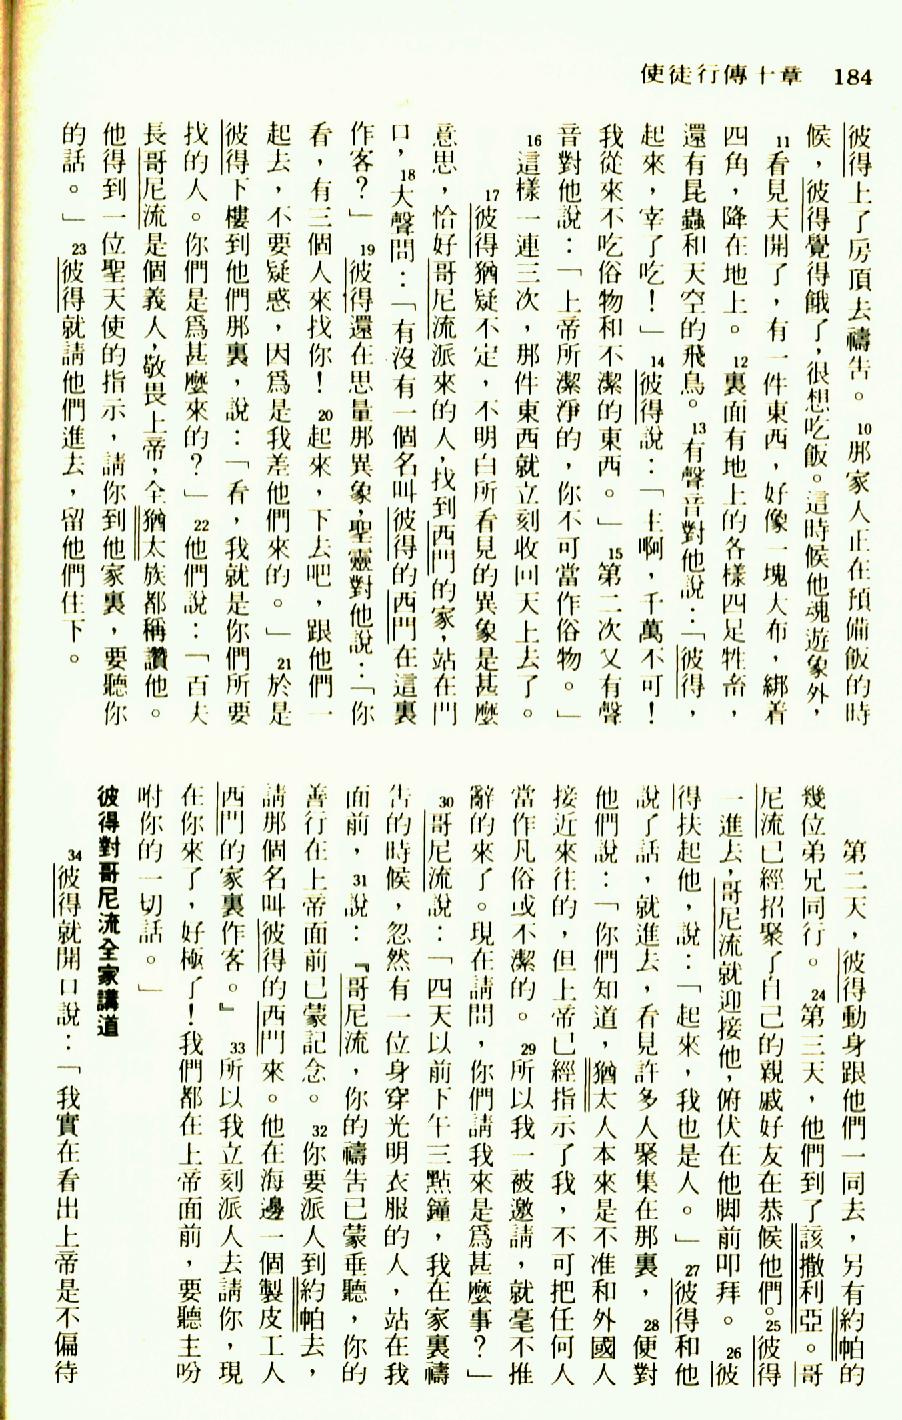 使徒行傳十章 184
彼得上了房頂去禱告。10那家人正在預備飯的時
候，彼得覺得餓了，很想吃飯。這時候他魂遊象外，
11看見天開了，有一件東西，好像一塊大布，綁着
四角，降在地上。12裏面有地上的各樣四足牲畜，
還有昆蟲和天空的飛鳥。13有聲音對他說：「彼得，
起來，宰了吃！」14彼得說：「主啊，千萬不可！
我從來不吃俗物和不潔的東西。」15第二次又有聲
音對他說：「上帝所潔淨的，你不可當作俗物。」
16這樣一連三次，那件東西就立刻收回天上去了。
17彼得猶疑不定，不明白所看見的異象是甚麼
意思，恰好哥尼流派來的人，找到西門的家，站在門
口，18大聲問：「有沒有一個名叫彼得的西門在這裏
作客？」19彼得還在思量那異象，聖靈對他說：「你
看，有三個人來找你！20起來，下去吧，跟他們一
起去，不要疑惑，因爲是我差他們來的。」21於是
彼得下樓到他們那裏，說：「看，我就是你們所要
找的人。你們是爲甚麼來的？」22他們說：「百夫
長哥尼流是個義人，敬畏上帝，全猶太族都稱讚他。
他得到一位聖天使的指示，請你到他家裏，要聽你
的話。」23彼得就請他們進去，留他們住下。
第二天，彼得動身跟他們一同去，另有約帕的
幾位弟兄同行。24第三天，他們到了該撒利亞。哥
尼流已經招聚了自己的親戚好友在恭候他們。25彼得
一進去，哥尼流就迎接他，俯伏在他脚前叩拜。26彼
得扶起他，說：「起來，我也是人。」27彼得和他
說了話，就進去，看見許多人聚集在那裏，28便對
他們說：「你們知道，猶太人本來是不准和外國人
接近來往的，但上帝已經指示了我，不可把任何人
當作凡俗或不潔的。29所以我一被邀請，就毫不推
辭的來了。現在請問，你們請我來是爲甚麼事？」
30哥尼流說：「四天以前下午三點鐘，我在家裏禱
告的時候，忽然有一位身穿光明衣服的人，站在我
面前，31說：『哥尼流，你的禱告已蒙垂聽，你的
善行在上帝面前已蒙記念。32你要派人到約帕去，
請那個名叫彼得的西門來。他在海邊一個製皮工人
西門的家裏作客。』33所以我立刻派人去請你，現
在你來了，好極了！我們都在上帝面前，要聽主吩
咐你的一切話。」
彼得對哥尼流全家講道
34彼得就開口說：「我實在看出上帝是不偏待